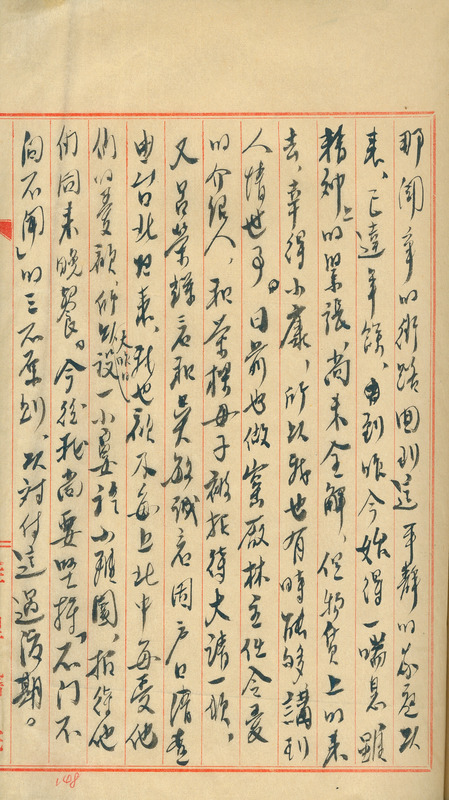 那鬪爭的街路回到這平靜的家庭以
來、已達年餘、到昨今始得一喘息雖
精神上的緊張、尚未全解、但物質上的來
去、幸得小康、所以我也有時能够講到
人情世事。日前也做窯廠林主任令愛
的介紹人、和茶樓母子被招待大請一頓、
又呂榮錄君和吳敏誠君因戶口清查
由台北歸來、我也欲及每上北中每受他
們的憂顧、所以昨天設一小宴於小班園、招待他
們同來晚餐。今後我尚要堅持「不問不
聞」的三不原則、以對付這過渡期。
148